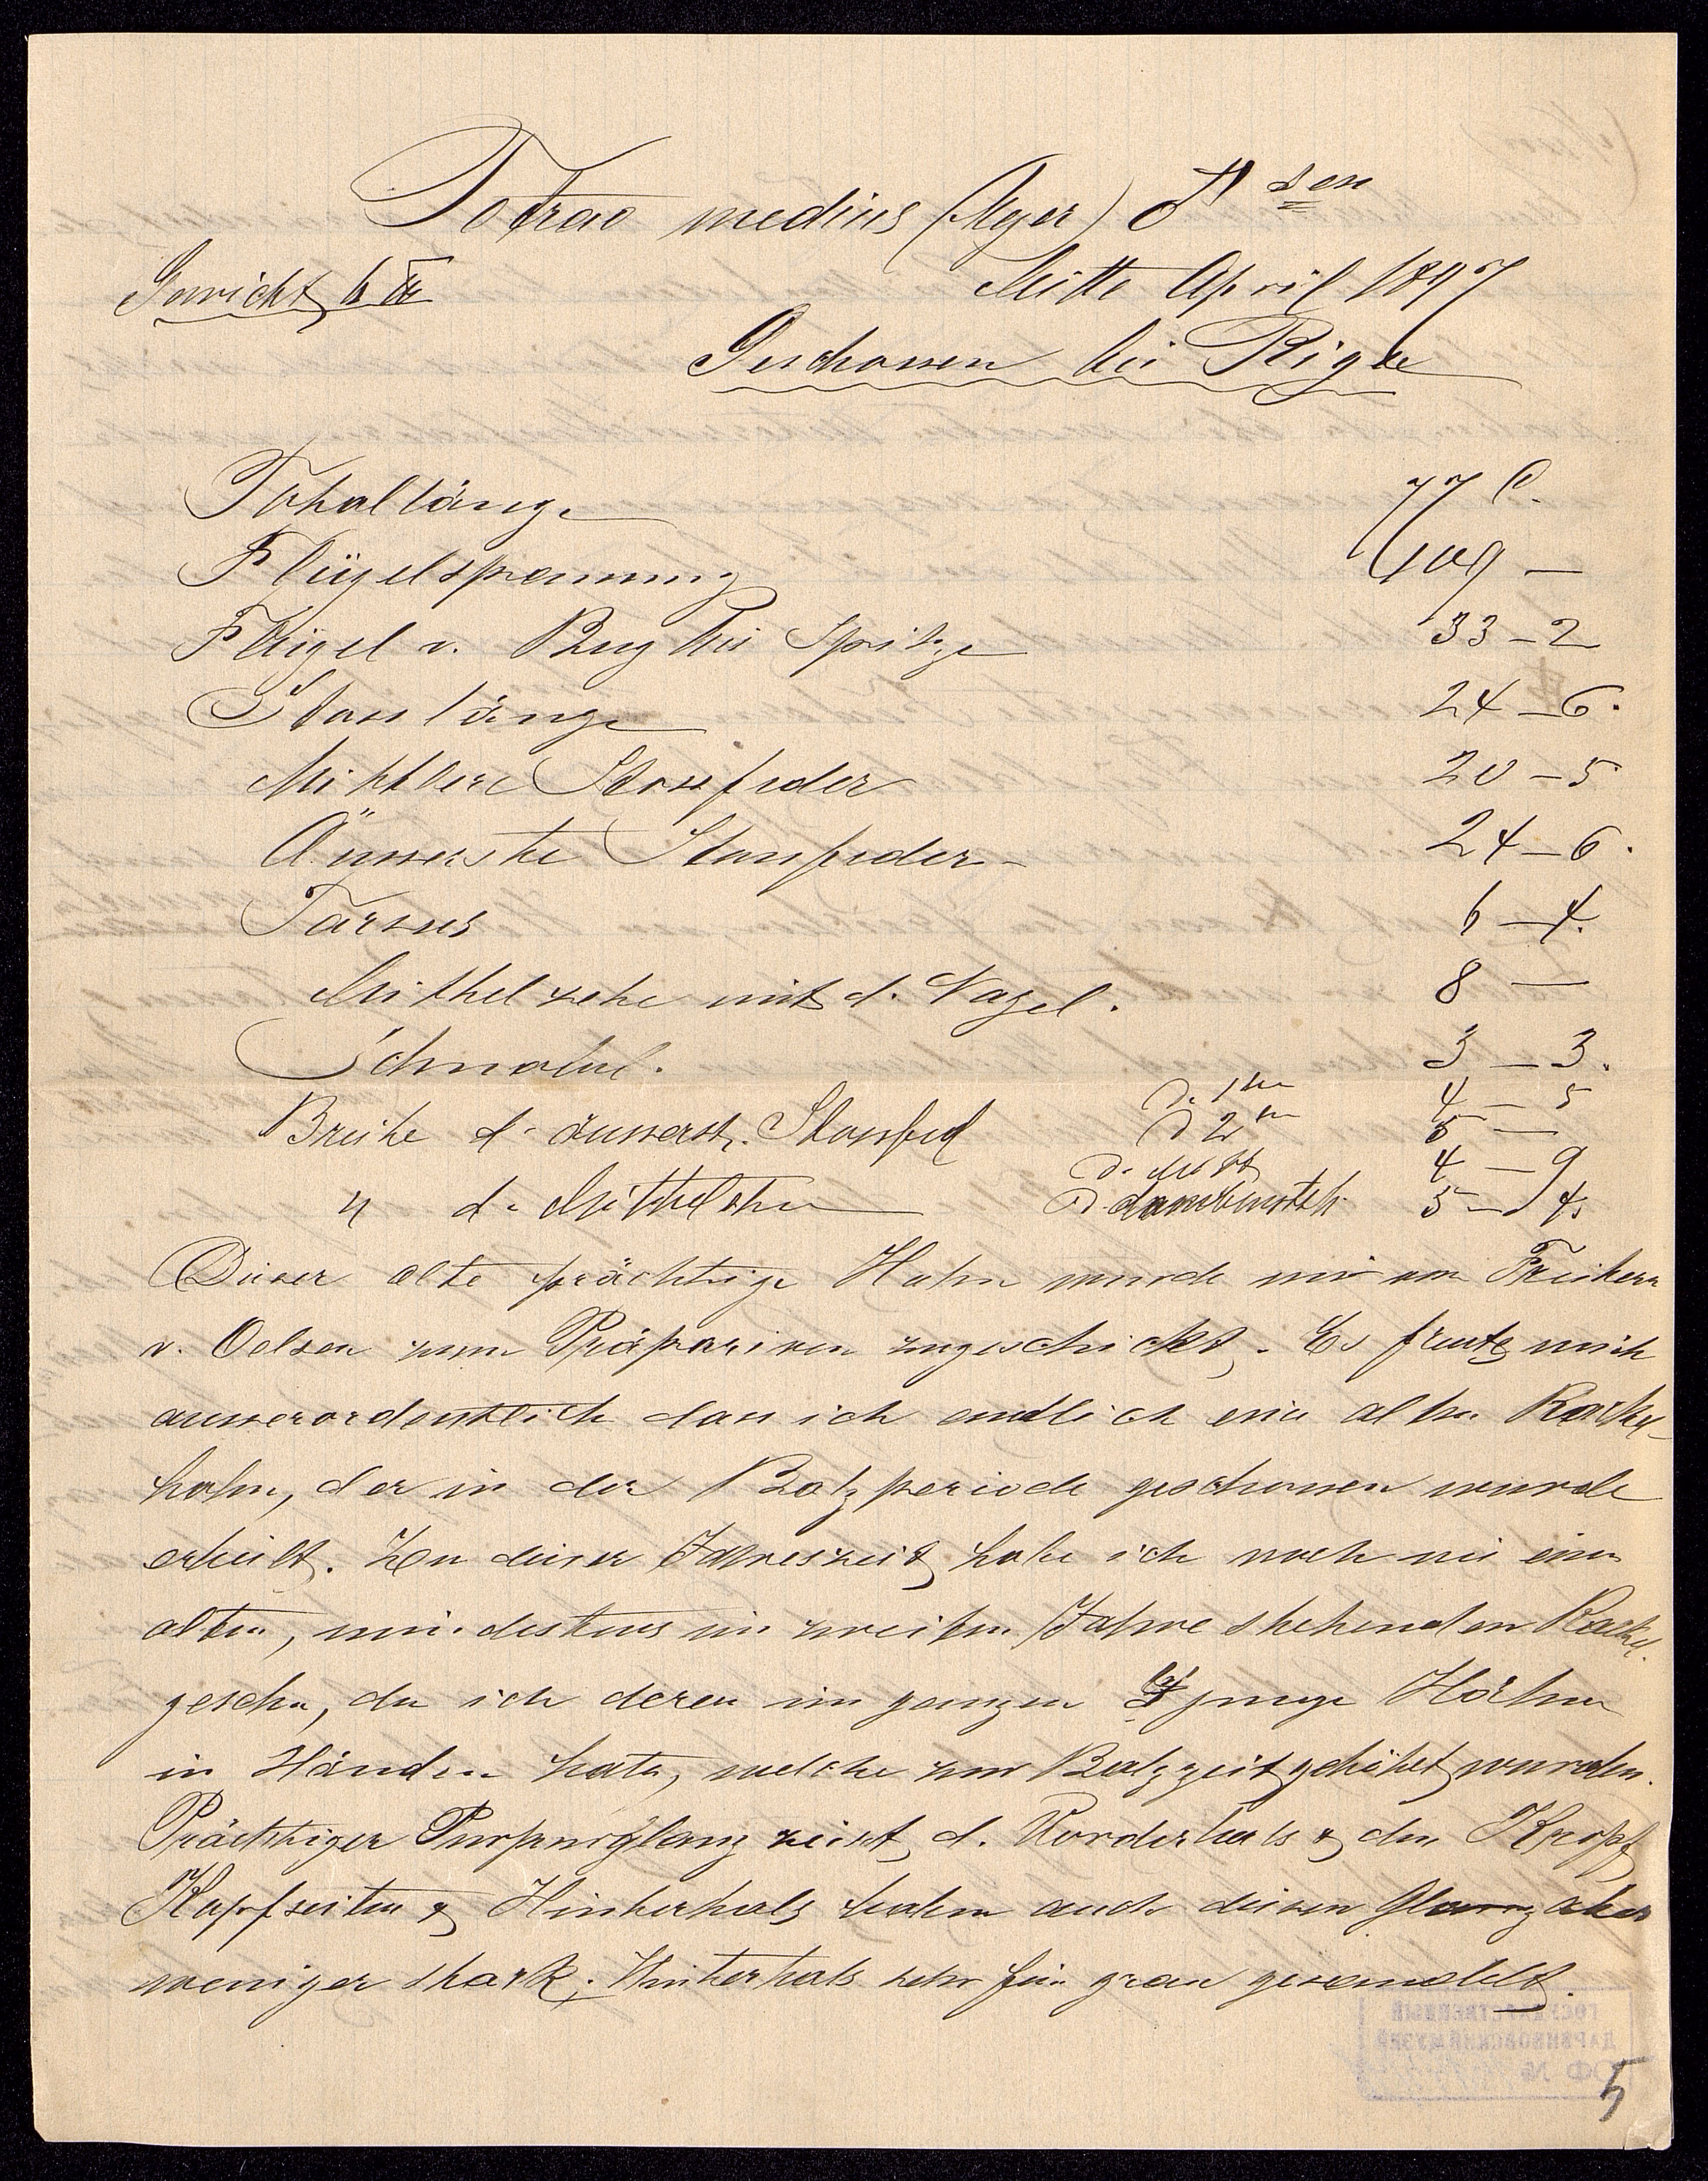 Tetrao medius (Meyer) ♂ sen
Gewicht 6 ℔
Mitte April 1897
Geschossen bei Riga
Totallänge 77 C.
Flügelspannung 109 —
Flügel v. Bug bis Spitze 33 – 2
Stosslänge 24 – 6.
Mittlere Stossfeder 20 – 5
Äusserste Stossfeder – 24 – 6.
Tarsus 6 – 4.
Mittelzehe mit d. Nagel. 8 —
Schnabel. 3 – 3.
Breite d. äusserst. Stossfed d. 1ten 4 – 5
d 2ten 5 —
" d. Mittelsten d. Mitt 4 – 9
d. 5 – 4.
Dieser alte prächtige Hahn wurde mir vom Freiherr
v. Oelsen zum Präpariren zugeschickt. Es freute mich
ausserordentlich dass ich endlich einen alten Rackel-
hahn, der in der Balzperiode geschossen wurde
erhielt. Zu dieser Jahreszeit habe ich noch nie einen
alten, mindestens im zweiten Jahre stehenden Rackel.
gesehn, da ich deren im ganzen junge Hähne
in Händen hatte, welche zur Balzzeit getödtet wurden.
Prächtiger Purpurglanz zeigt d. Vorderhals & den Kropf
Kopfseiten & Hinterhals haben auch diesen Glanz aber
weniger stark; Hinterhals sehr fein grau gewandelt.
ГОСУДАРСТВЕННЫЙ
ДАРВИНОВСКИЙ МУЗЕЙ
ОФ №
5